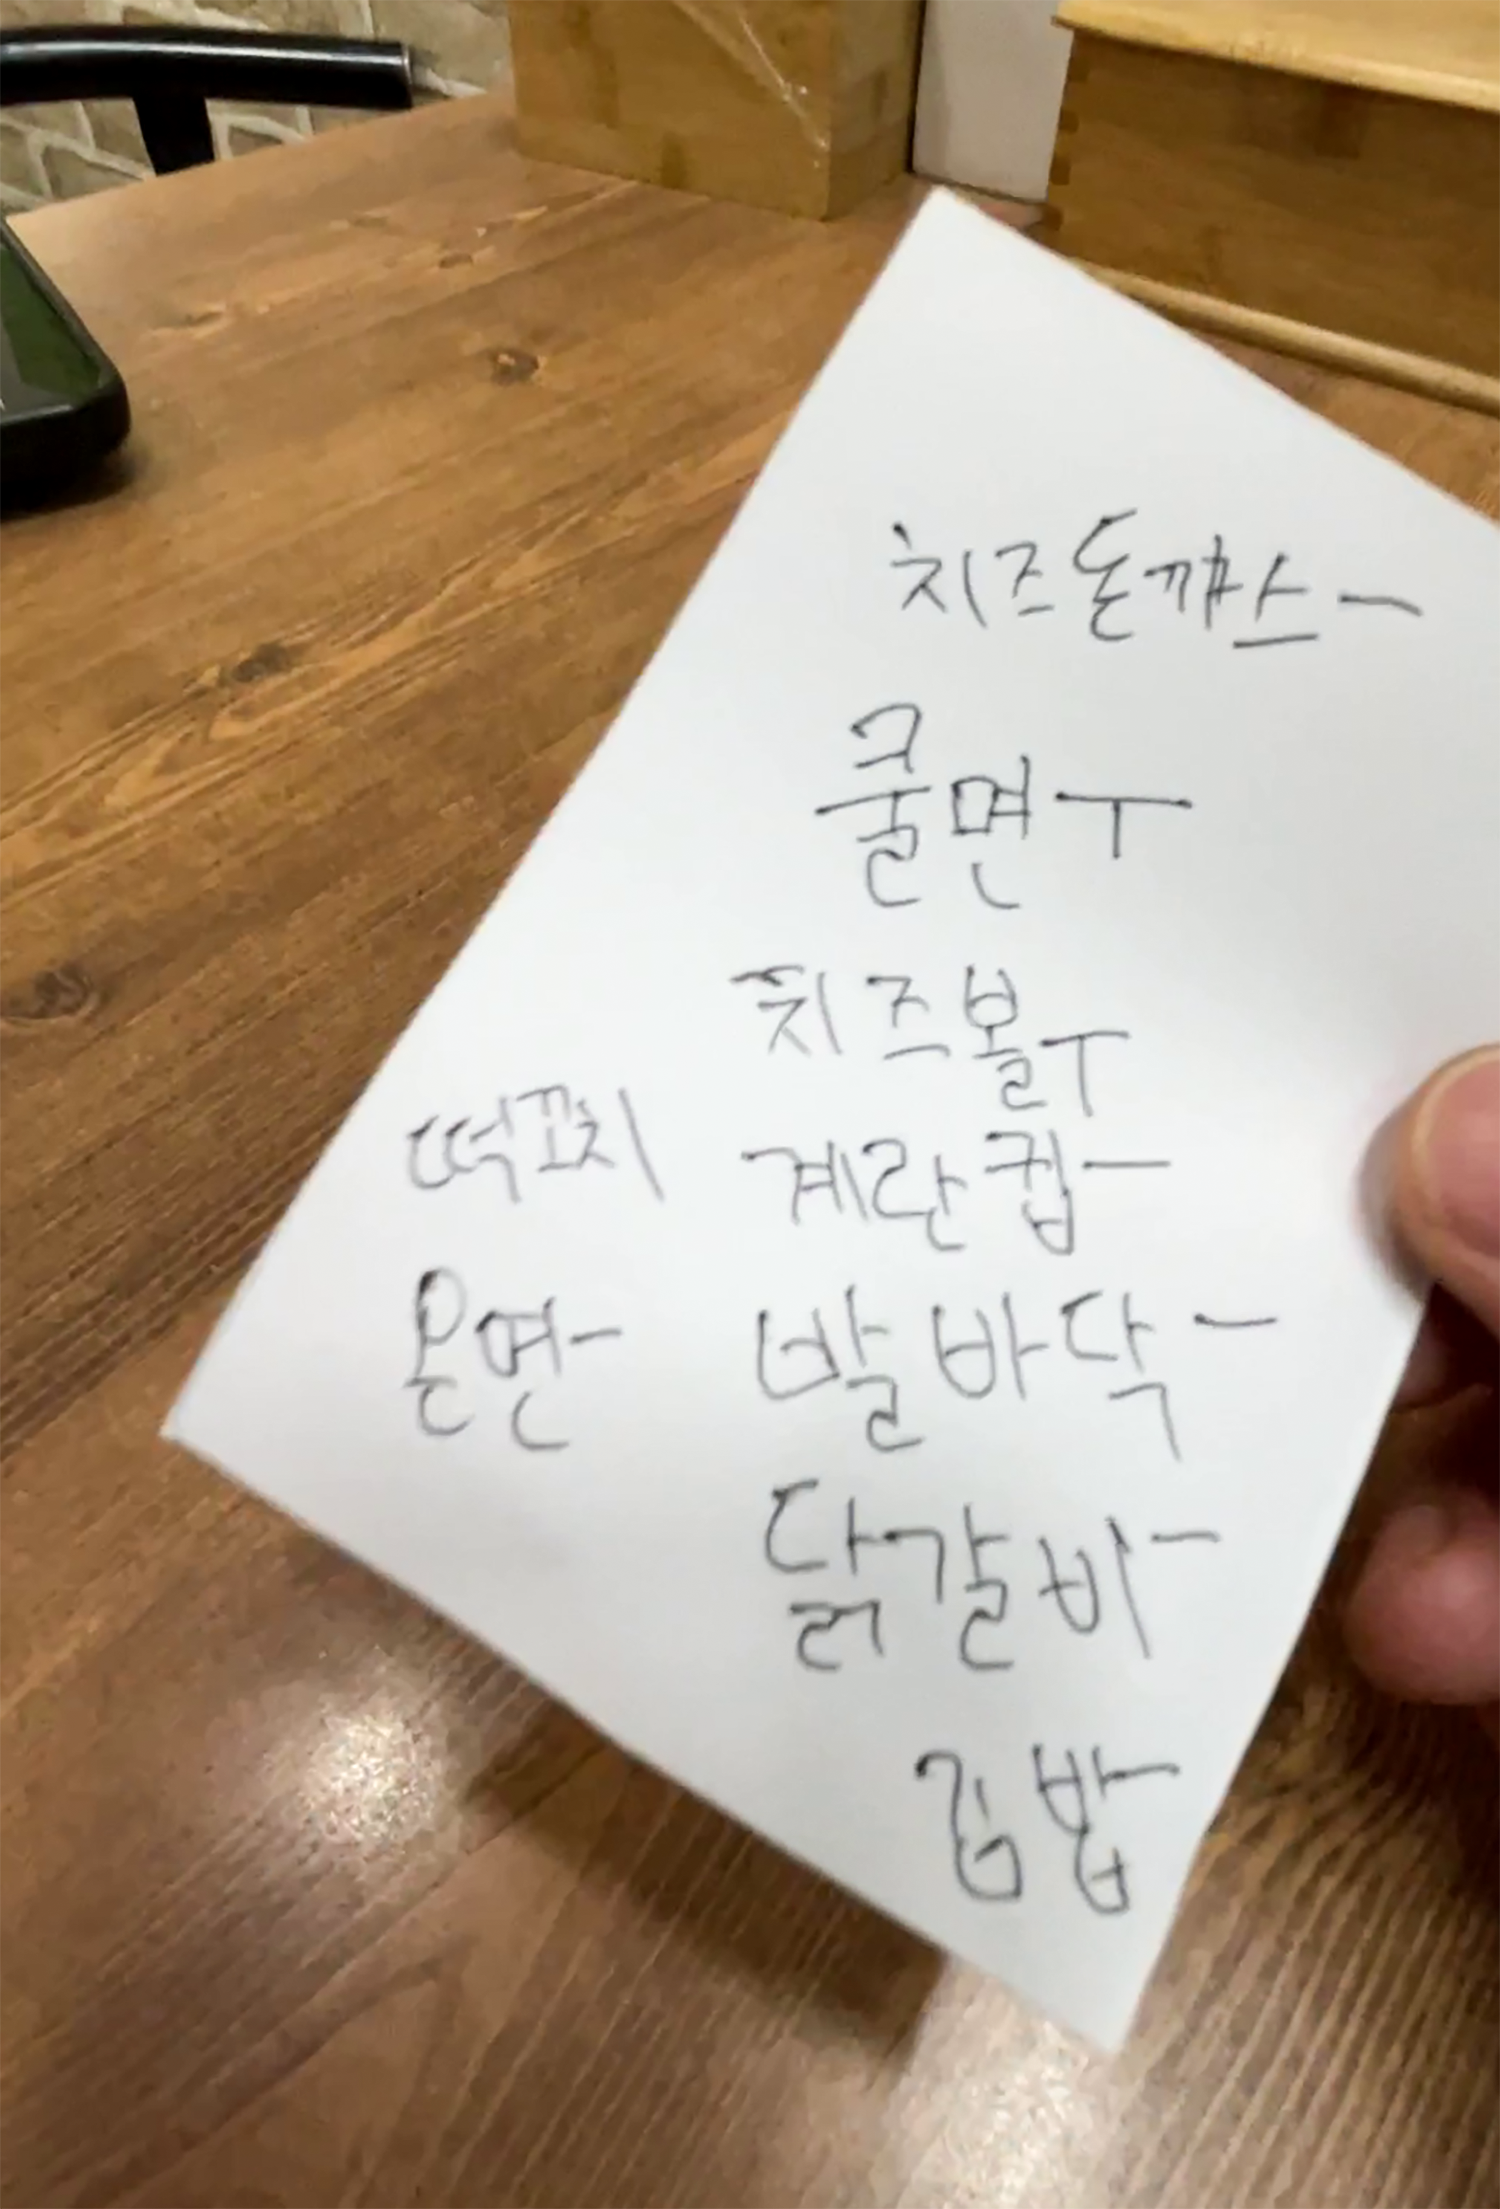 치즈돈까스 一
쿨면 ㅜ
치즈볼 ㅜ
떡꼬치 계란컵 一
온면 一 발바닥 一
닭갈비 一
김밥 一